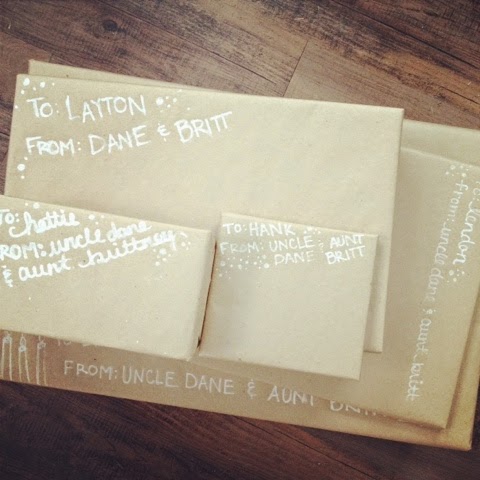 TO: LAYTON
FROM: DANE & BRITT
TO: Hattie
FROM: uncle dane
& aunt brittney
TO: HANK
FROM: UNCLE & AUNT
DANE BRITT
TO: London
from: uncle dane & aunt britt
TO:
FROM: UNCLE DANE & AUNT BRITT